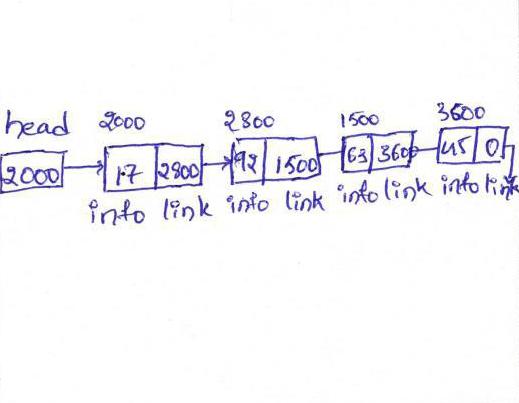 head 2000 2800 1500 3600
2000 17 2800 92 1500 63 3600 45 0
info link info link info link info link